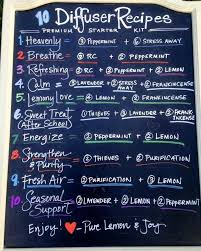 10 Diffuser Recipes
PREMIUM STARTER KIT
1. Heavenly = ③ PEPPERMINT + ⑥ STRESS AWAY
2. Breathe = ② RC + ② PEPPERMINT
3. Refreshing = ② RC + ② PEPPERMINT + ② LEMON
4. Calm = ③ LAVENDER + ② STRESS AWAY + ② FRANKINCENSE
5. Lemony Love = ④ LEMON + ② FRANKINCENSE
6. Sweet Treat (After School) = ② LAVENDER + ② STRESS AWAY + FRANKINCENSE
7. Energize = ② PEPPERMINT + ② LEMON
8. Strengthen & Purify = ② THIEVES + ② PURIFICATION
9. Fresh Air = ② PURIFICATION + ③ LEMON
10. Seasonal Support = ② LAVENDER + ② LEMON + ② PEPPERMINT
Enjoy! Pure Lemon & Joy